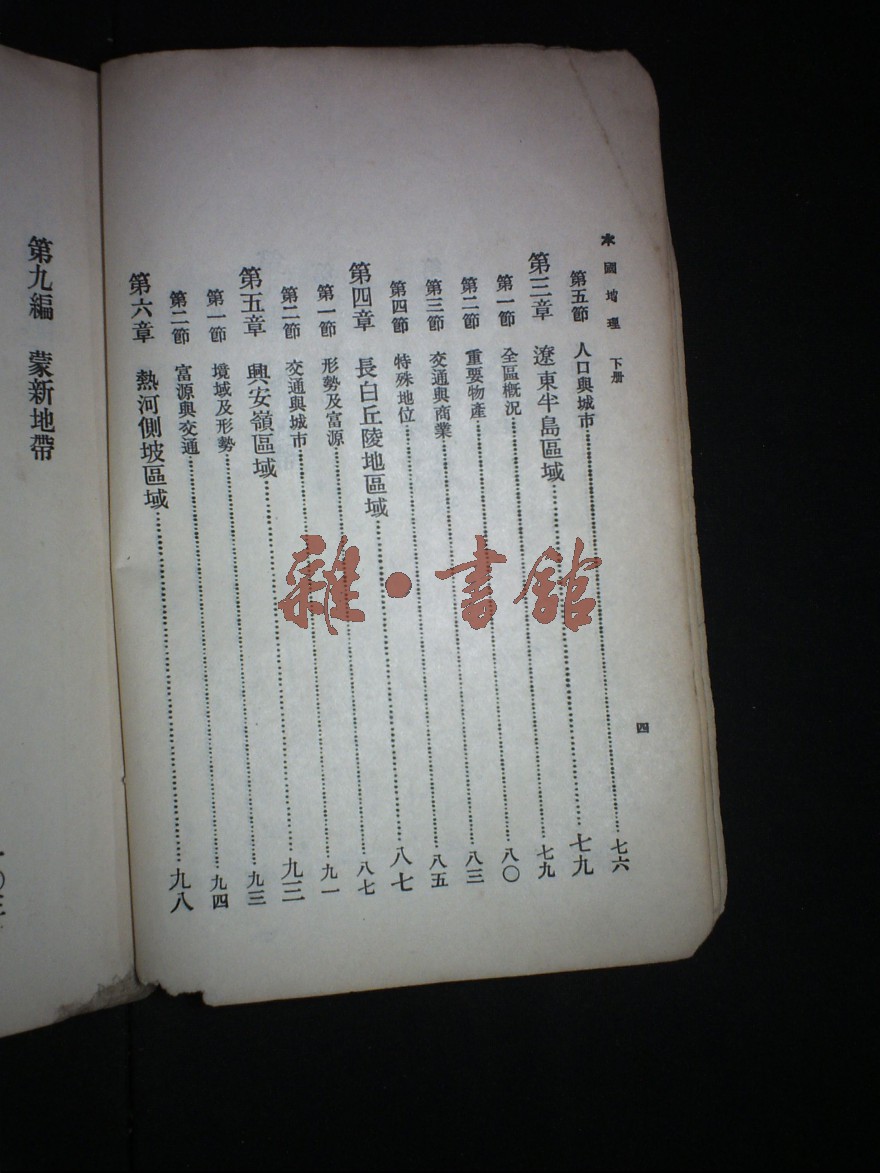 本國地理 下册
四
第五節 人口與城市……七六
第三章 遼東半島區域……七九
第一節 全區概況……七九
第二節 重要物產……八〇
第三節 交通與商業……八三
第四節 特殊地位……八五
第四章 長白丘陵地區域……八七
第一節 形勢及富源……八七
第二節 交通與城市……九一
第五章 興安嶺區域……九三
第一節 境域及形勢……九三
第二節 富源與交通……九四
第六章 熱河側坡區域……九八
第九編 蒙新地帶
雜·書館